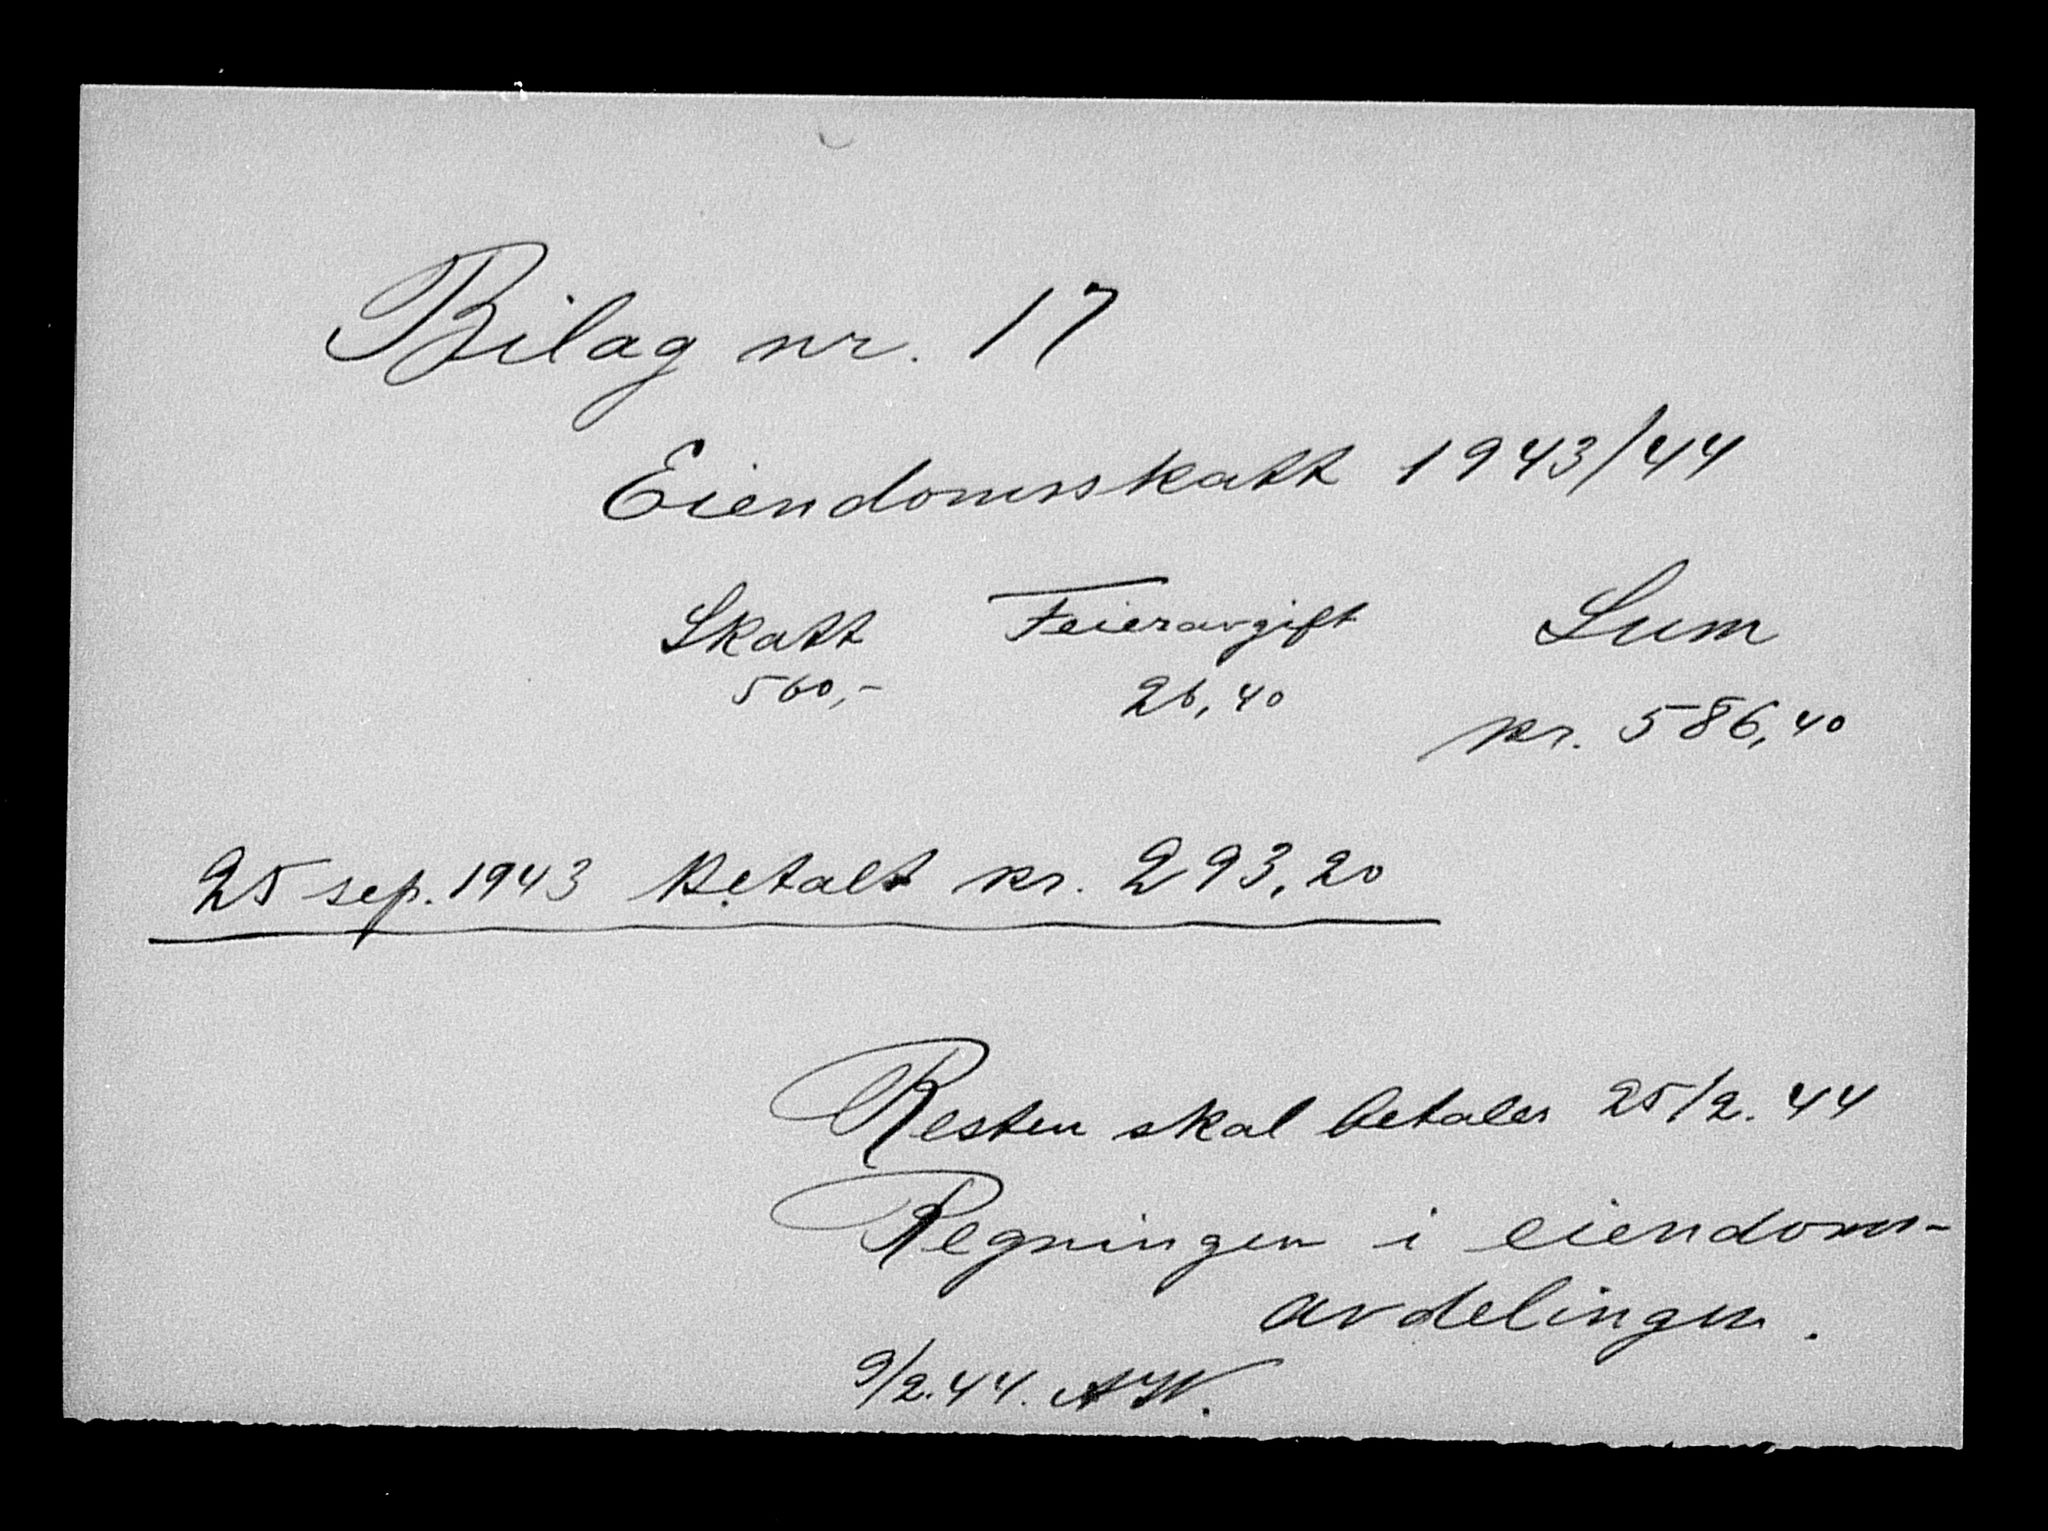 Bilag nr. 17
Eiendomsskatt 1943/44
Skatt Feieravgift Sum
560,- 26,40 kr. 586,40
25 sep. 1943 Betalt kr. 293,20
Resten skal betales 25/2. 44
Regningen i eiendoms-
avdelingen.
9/2.44. AW.